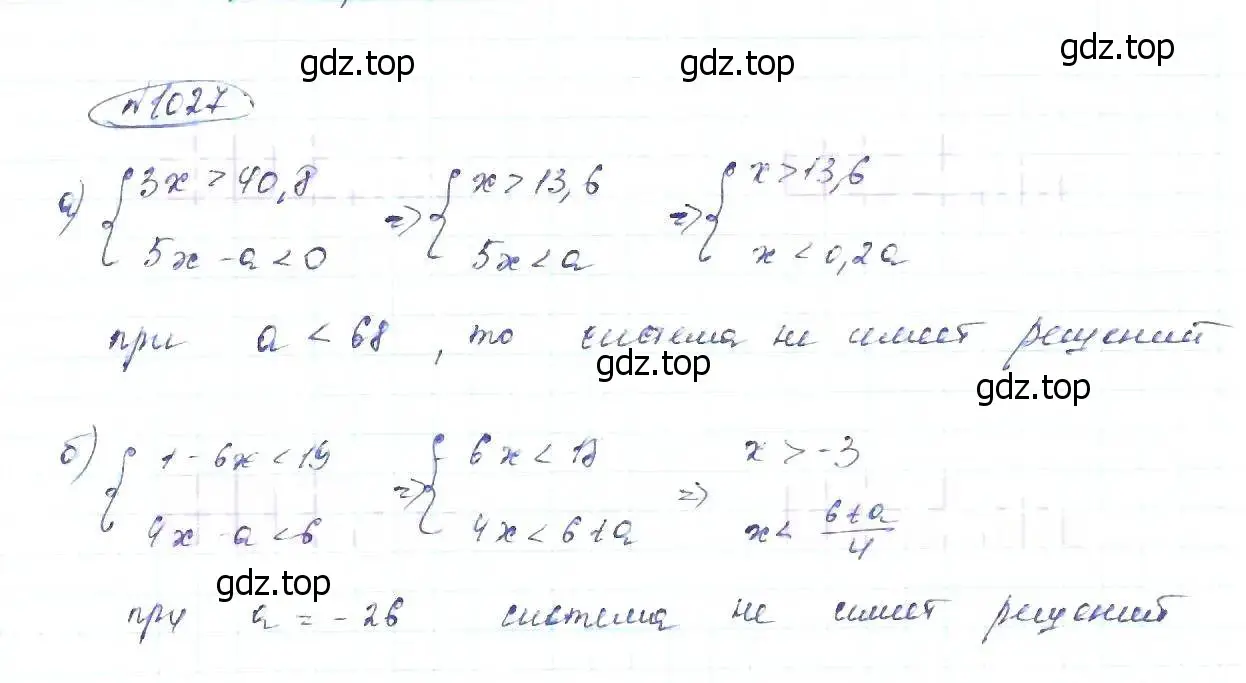 gdz.top gdz.top gdz.top
№1027
а) { 3x > 40,8 => { x > 13,6 => { x > 13,6
5x - a < 0 5x < a x < 0,2a
при a < 68, то система не имеет решений
gdz.top gdz.top
б) { 1 - 6x < 19 => { 6x < 18 => x > -3
4x - a < 6 4x < 6 + a x < (6+a)/4
gdz.top
при a = -26 система не имеет решений